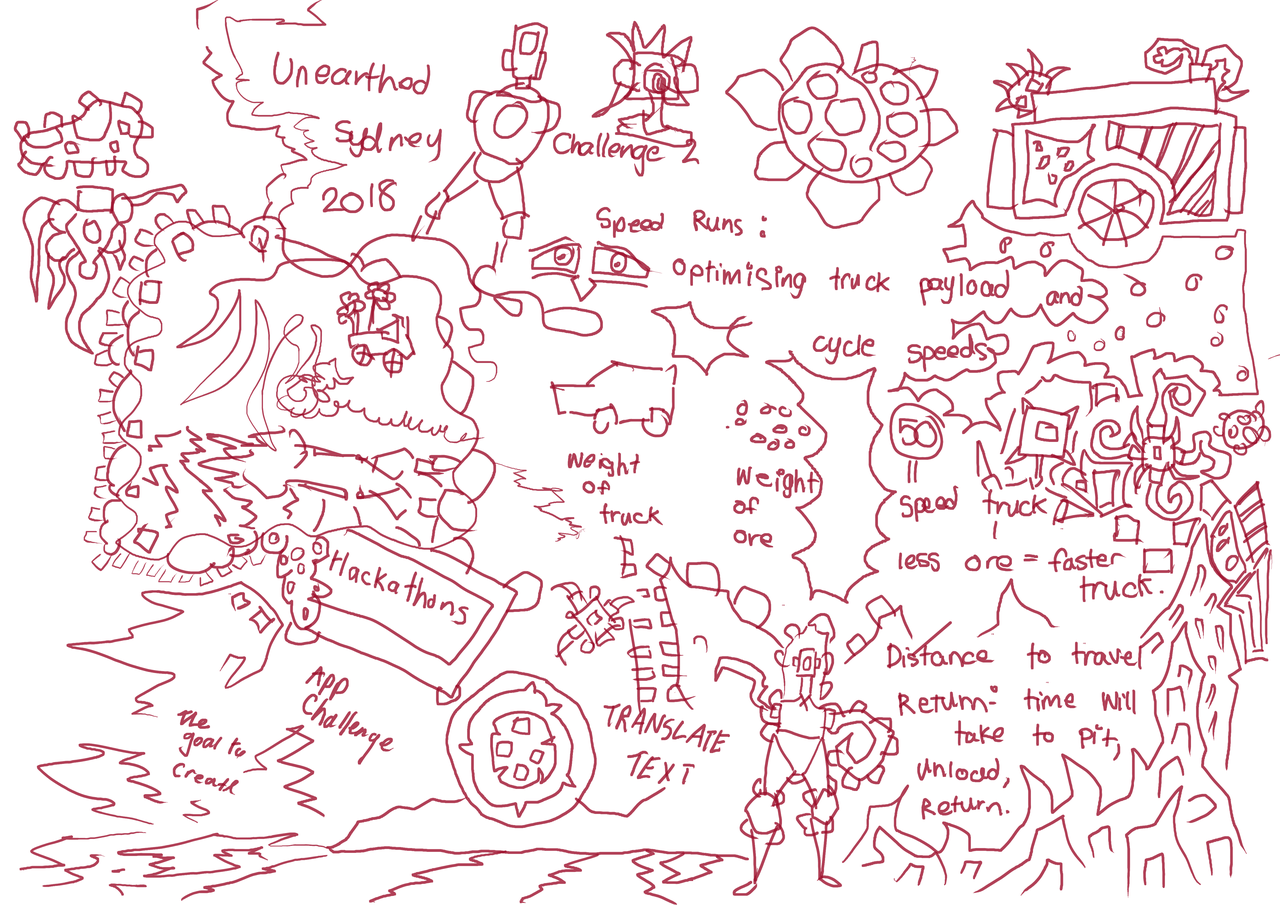 Unearthed
Sydney
2018
Challenge 2
Speed Runs:
Optimising truck payload and
cycle speeds
Weight
of
truck
Weight
of
ore
50
Speed truck
less ore = faster
truck.
Distance to travel
Return: time will
take to pit,
Unload,
Return.
Hackathons
App
Challenge
The
goal to
create
TRANSLATE
TEXT